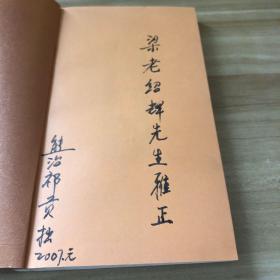 梁老绍辉先生雅正
熊治祁贡拙
2007.元